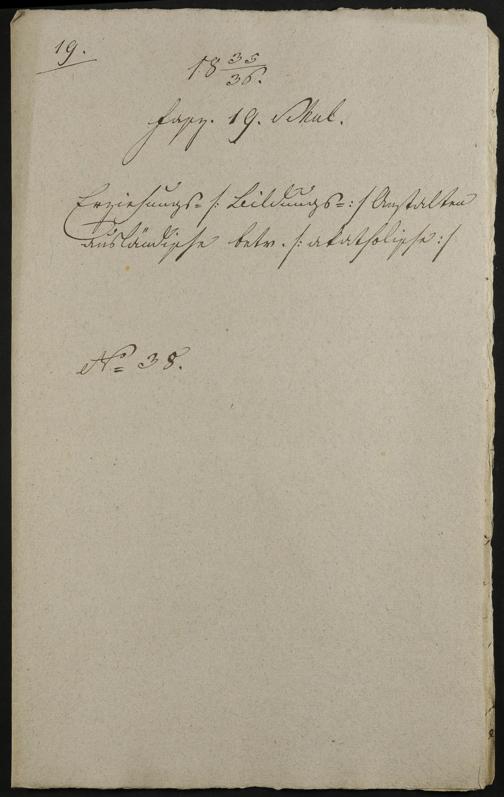 19.
18 35/36.
Fasz. 19. Schul.
Erziehungs- /: Bildungs-: / Anstalten
ausländische betr. /: akatholische :/
No 38.